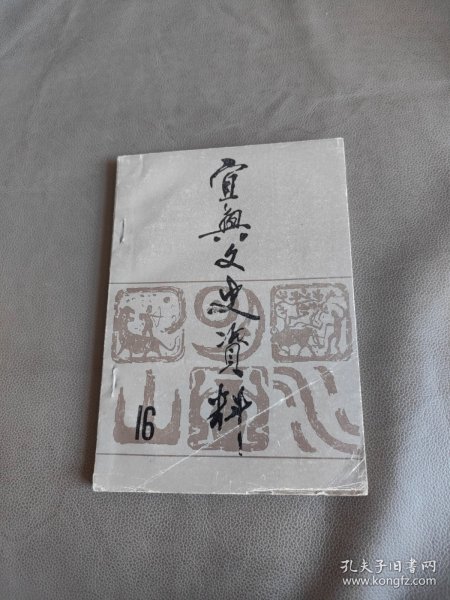 宜興文史資料
16
孔夫子旧书网
www.kongfz.com